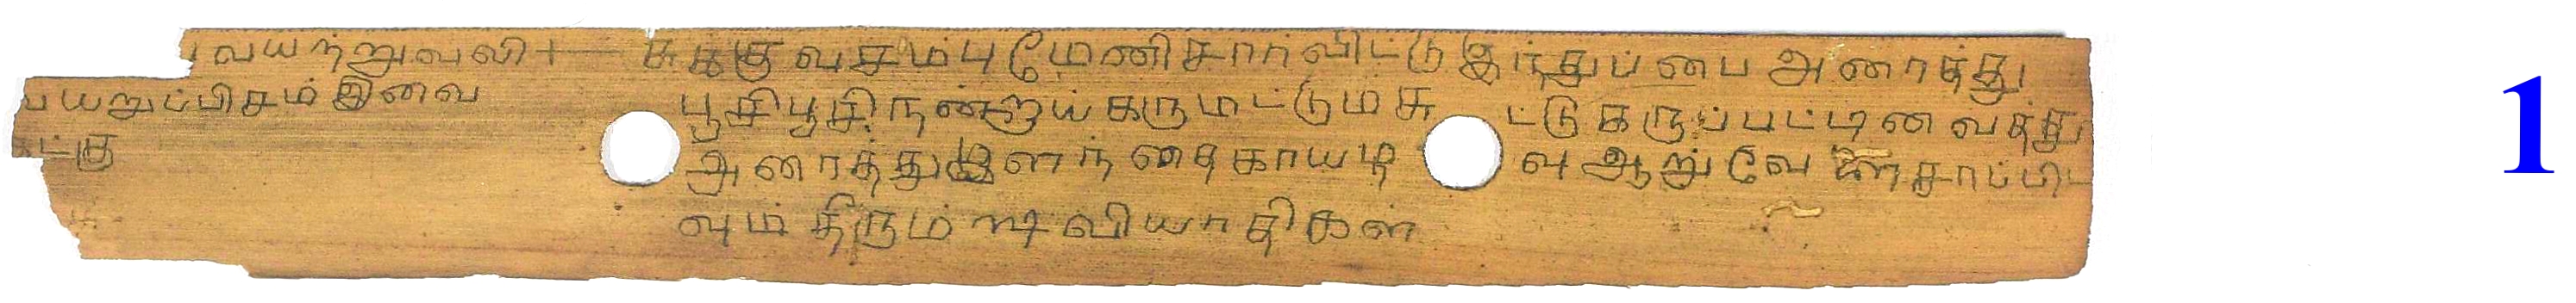 வயற்றுவலி + சுக்கு வசம்பு மேணிசாரர்விட்டு இந்துப்பை அரைத்து
பயறுப்பிசம் இவை பூசி பூசி நன்றாய் கருமட்டும் சுட்டு கருப்பட்டி வைத்து
ட்கு அரைத்து இளந்தைகாயடி வு ஆறு வேளைசாப்பிட
வும் தீரும் வியாதிகள்
1